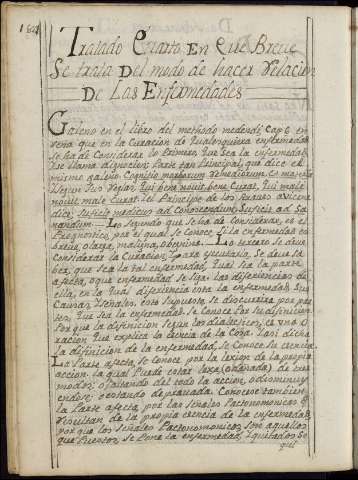 184
Tratado Quarto En Que Breve
Se trata Del modo de hacer Relacion
De Las Enfermedades
Galeno en el libro del methodo medendi, Cap. 6. en
seña que en la Curacion de Qualesquiera enfermedad
se ha de Considerar lo Primero, Que Sea la enfermedad,
es llama algunos, Parte tan Principal, que dice el
mismo galeno Cognitio morborum Remediorum es
Segun sus Reglas Qui bene novit bene Curat, Qui male
novit, male Curat, y el Principe de los Araves avicena
dice: Suficit medicus ad Cognoscendum Suficit ad Sa
nandum. Lo segundo que se ha de Considerar, es el
Prognostico, por el qual se Conoce si la enfermedad es
breve, o larga, maligna, o benigna. Lo tercero se deve
Considerar la Curacion; Para executarlo, Se deve sa
ber, que sea la tal enfermedad, Qual sea la parte
afecta, o que enfermedad se siga: las diferiencias de
ella, en lo Qual diferiencia esta la enfermedad, Sus
Causas, y Señales. esto supuesto se discurrira por par
tes; Que sea la enfermedad, Se Conoce Por su difinicion
Por que la difinicion segun los dialecticos, es una o
racion Que explica la Esencia de la Cosa: Y asi dicha
la difinicion de la enfermedad, Se Conoce Su esencia.
La Parte afecta, se Conoce por la lesion de la propia
accion. la qual Puede estar lexa (o dañada) de tres
modos: o faltando del todo la accion, o disminuy
endose, o estando depravada. Conocese tambien
la Parte afecta por los señales Pactonomonicos, q
Resultan de la propia esencia de la enfermedad,
por que los Señales Pactonomonicos, son aquellos
que Puestos, se Pone la enfermedad, y quitados Se
quit